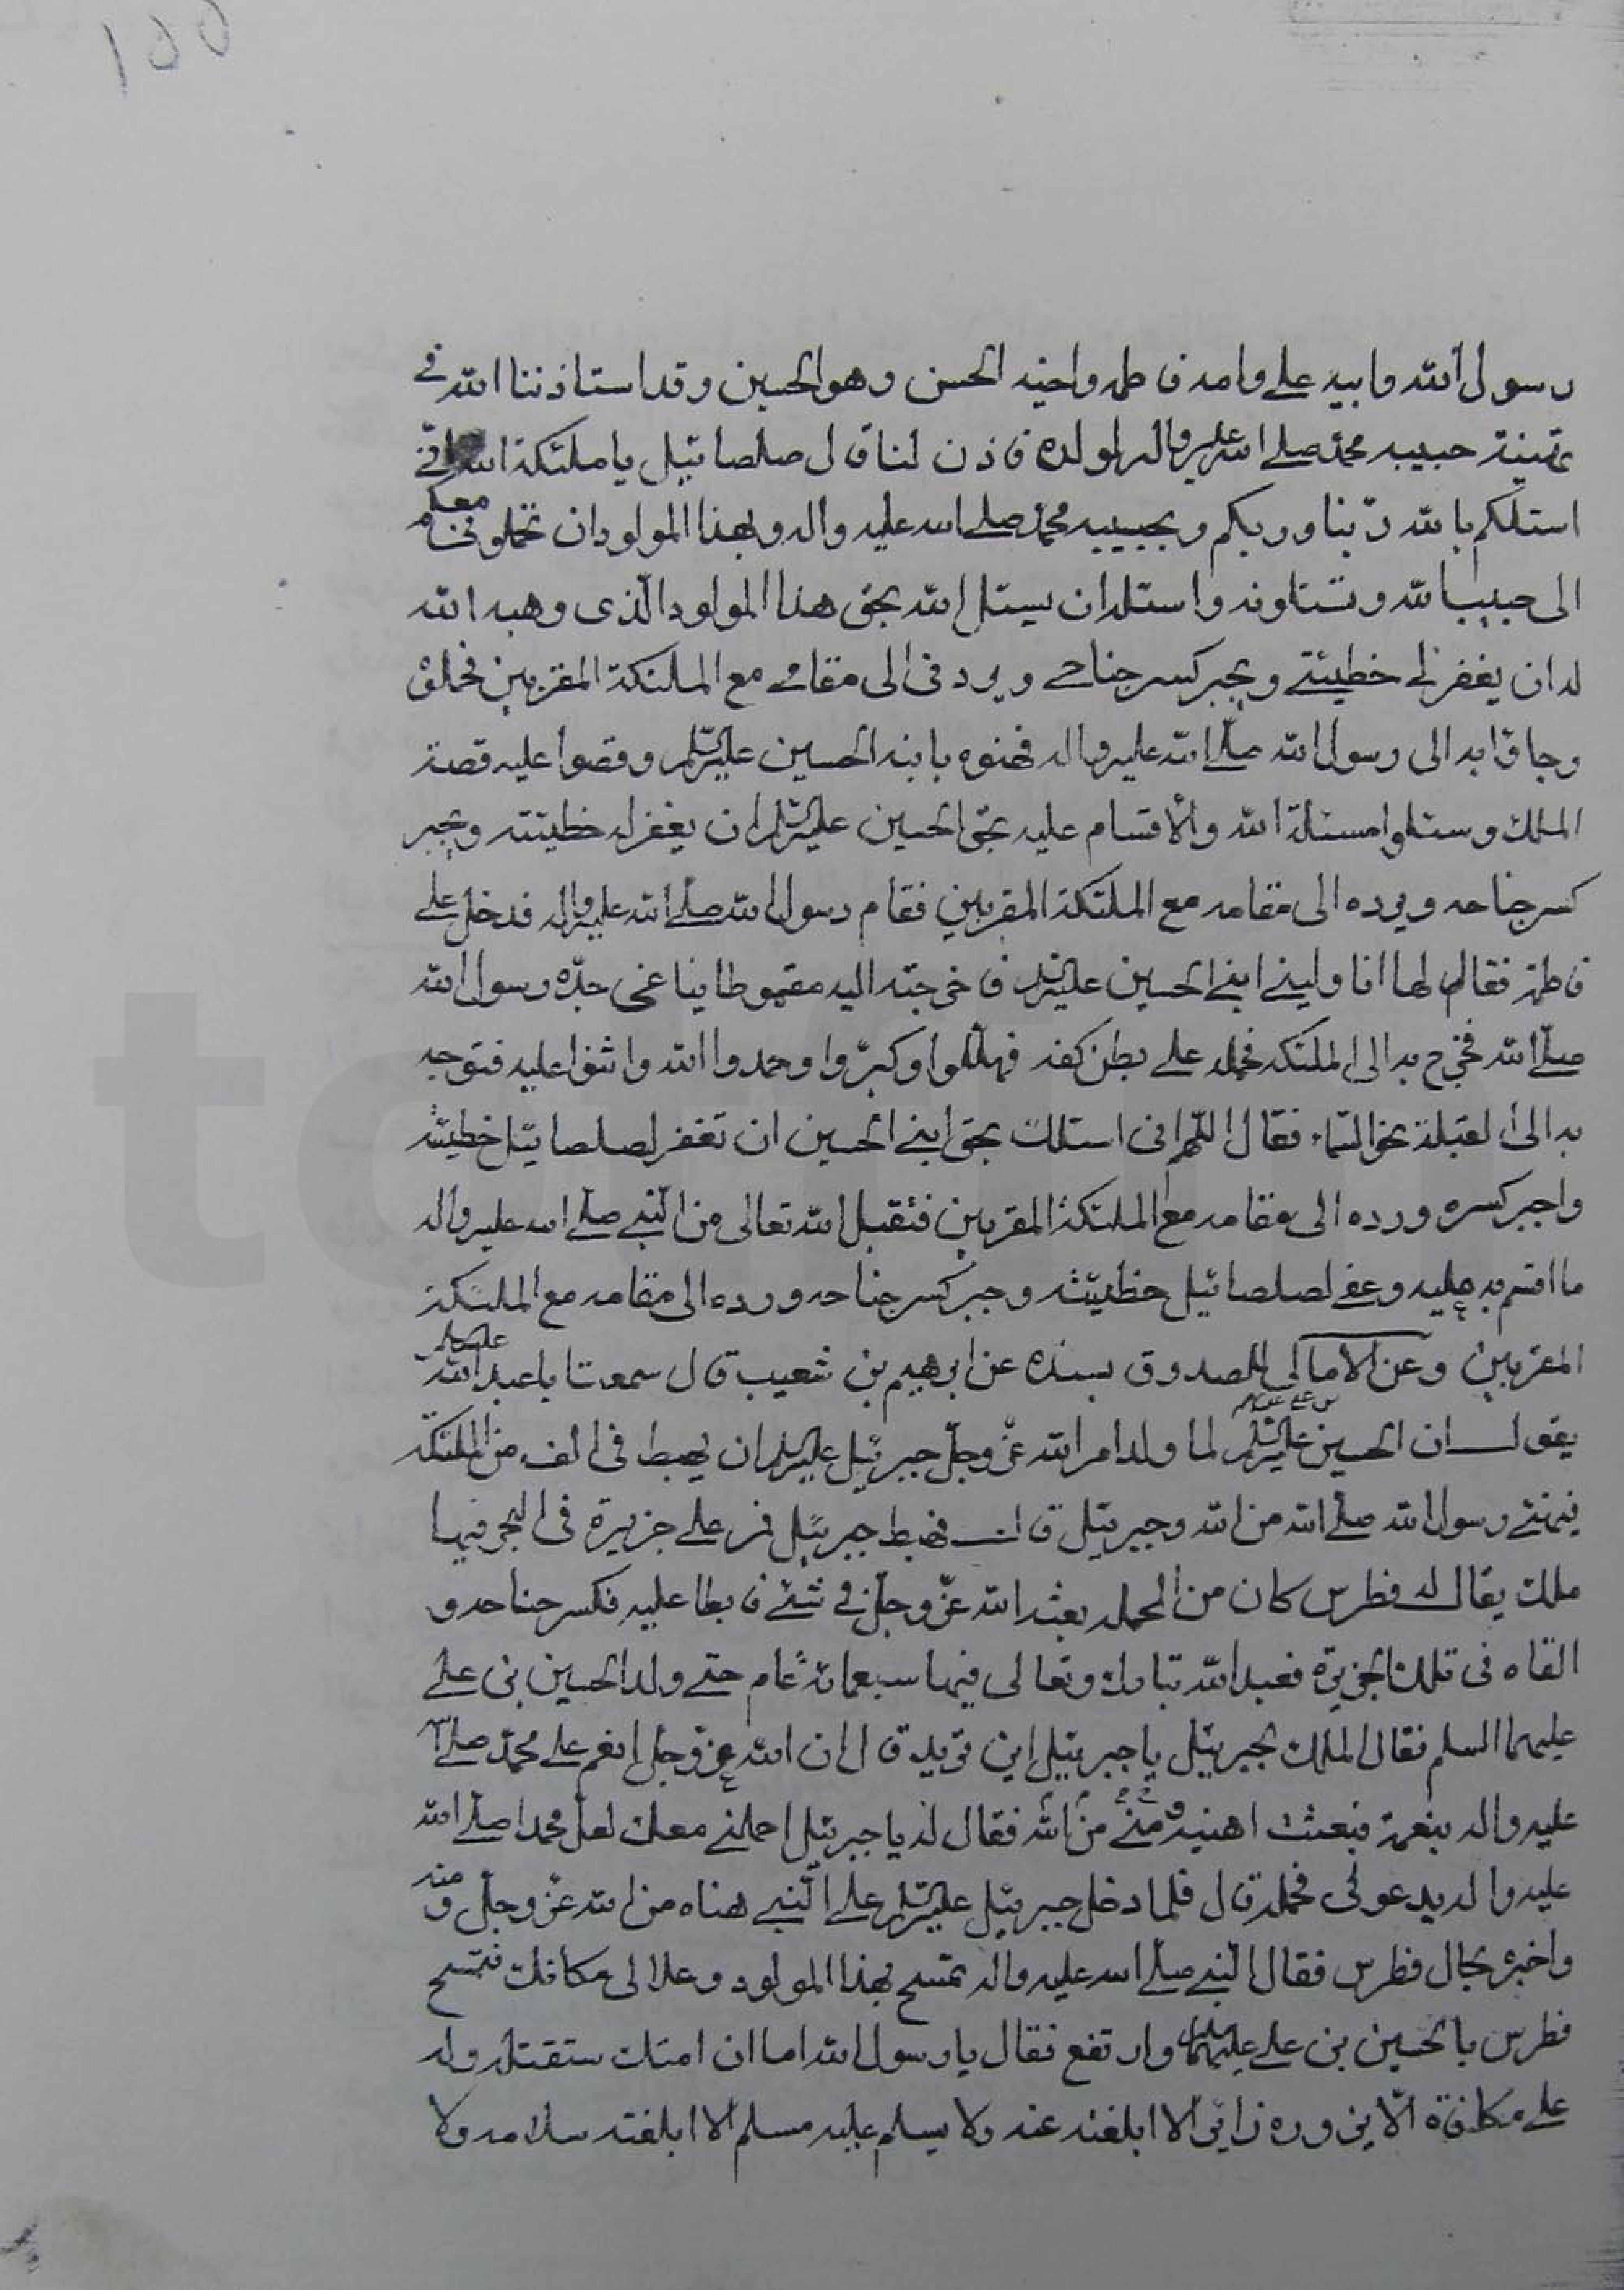 ١٥٥
رسول الله وابيه علي وامه فاطمه واخيه الحسن وهو الحسين وقد استاذننا الله في
تهنية حبيبه محمد صلى الله عليه واله لولده فاذن لنا قال صلصائيل يا ملئكة الله اني
اسئلكم بالله ربنا وربكم وبحبيبه محمد صلى الله عليه واله وبهذا المولود ان تحملوني معكم
الى حبيب الله وتسئلونه واسئله ان يسئل الله بحق هذا المولود الذي وهبه الله
له ان يغفر لي خطيئتي ويجبر كسر جناحي ويردني الى مقامي مع الملئكة المقربين فحملوه
وجاؤا به الى رسول الله صلى الله عليه واله فهنوه بابنه الحسين عليه السلام وقصوا عليه قصة
الملك وسئلوا مسئلة الله والاقسام عليه بحق الحسين عليه السلام ان يغفر له خطيئته ويجبر
كسر جناحه ويرده الى مقامه مع الملئكة المقربين فقام رسول الله صلى الله عليه واله فدخل على
فاطمة فقال لها ناوليني ابني الحسين عليه السلام فاخرجته اليه مقموطا يناغي جده رسول الله
صلى الله فخرج به الى الملئكه فحمله على بطن كفه فهللوا وكبروا وحمدوا الله واثنوا عليه فتوجه
به الى القبلة نحو السماء فقال اللهم اني اسئلك بحق ابني الحسين ان تغفر لصلصائيل خطيئته
واجبر كسره ورده الى مقامه مع الملئكة المقربين فتقبل الله تعالى من النبي صلى الله عليه واله
ما اقسم به عليه وعفى لصلصائيل خطيئته وجبر كسر جناحه ورده الى مقامه مع الملئكة
المقربين وعن الامالي للصدوق بسنده عن ابرهيم بن شعيب قال سمعت ابا عبد الله عليه السلام
يقول ان الحسين بن علي عليه السلام لما ولد امر الله عز وجل جبرئيل عليه السلام ان يهبط في الف من الملئكة
فيهنئ رسول الله صلى الله من الله وجبرئيل قال فهبط جبرئيل فمر على جزيرة في البحر فيها
ملك يقال له فطرس كان من الحمله بعثه الله عز وجل في شئ فابطا عليه فكسر جناحه و
القاه في تلك الجزيرة فعبد الله تبارك وتعالى فيها سبعمائة عام حتى ولد الحسين بن علي
عليهما السلم فقال الملك لجبرئيل يا جبرئيل اين تريد قال ان الله عز وجل انعم على محمد صلى الله
عليه واله بنعمة فبعثت اهنيه من الله ومني فقال له يا جبرئيل احملني معك لعل محمدا صلى الله
عليه واله يدعو لي فحمله قال فلما دخل جبرئيل عليه السلام على النبي هناه من الله عز وجل ومنه
واخبره بحال فطرس فقال النبي صلى الله عليه واله تمسح بهذا المولود وعد الى مكانك فتمسح
فطرس بالحسين بن علي عليهما السلام وارتفع فقال يا رسول الله اما ان امتك ستقتله وله
علي مكافاة الا يزوره زائر الا ابلغته عنه ولا يسلم عليه مسلم الا ابلغته سلامه ولا